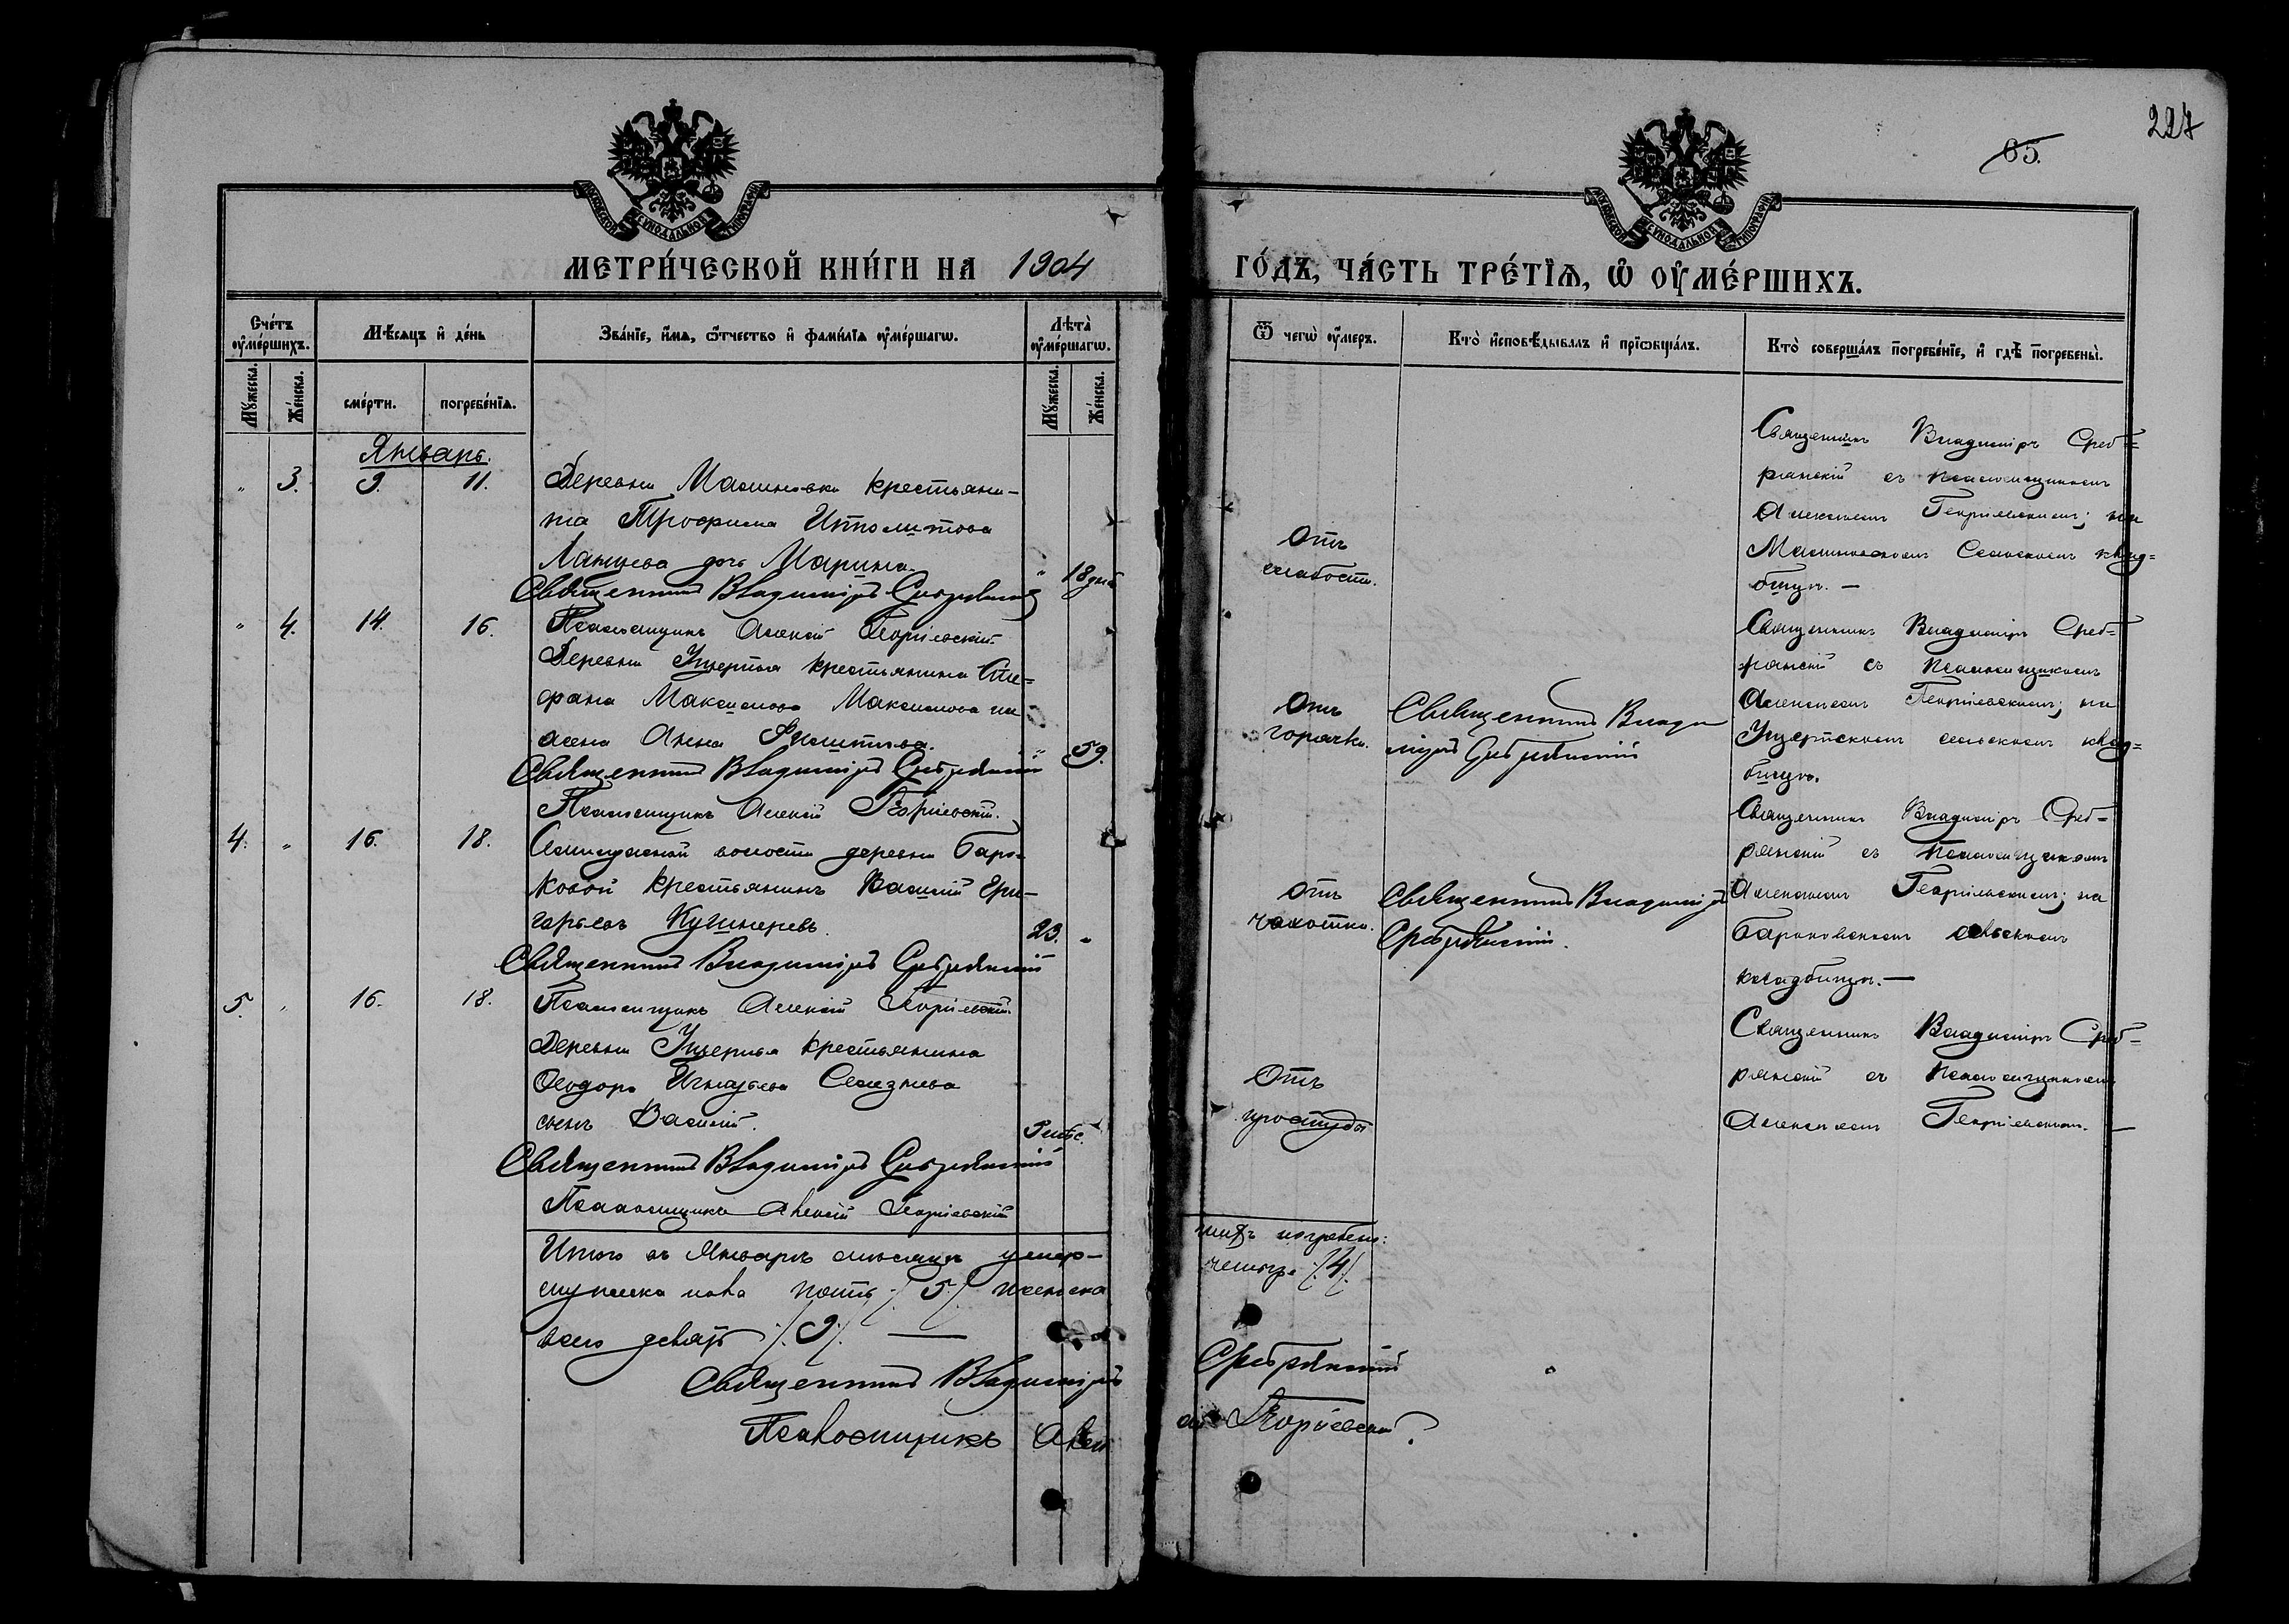 227
65.
МОСКОВСКОЙ СѴНОДАЛЬНОЙ ТИПОГРАФІИ
МОСКОВСКОЙ СѴНОДАЛЬНОЙ ТИПОГРАФІИ
МЕТРИ́ЧЕСКОЙ КНИ́ГИ НА 1904
ГО́ДЪ, ЧА́СТЬ ТРЕ́ТІѦ, Ѡ ОУ҆МЕ́РШИХЪ.
Сче́тъ оу҆ме́ршихъ.
Мѣ́сѧцъ и҆ де́нь
Зва́нїе, и҆́мѧ, ѻ҆́тчество и҆ фами́лїѧ оу҆ме́ршагѡ.
Лѣ́та оу҆ме́ршагѡ.
Мꙋ́жеска.
Же́нска.
сме́рти.
погребе́нїѧ.
Мꙋ́жеска.
Же́нска.
Ѿ чегѡ̀ оу҆́меръ.
Кто̀ и҆сповѣ́дывалъ и҆ прїѡбща́лъ.
Кто̀ соверша́лъ погребе́нїе, и҆ гдѣ̀ погребены̀.
Январь.
" 3. 9. 11.
Деревни Малиновки крестьяни-
на Трофима Ипполитова
дочь Марина.
" 18 дней
Священникъ Владиміръ Сребрянскій
Псаломщикъ Алексій Георгіевскій.
Отъ
слабости.
Священникъ Владиміръ Среб=
рянскій съ псаломщикомъ
Алексіемъ Георгіевскимъ; на
Малиновскомъ Сельскомъ клад=
бищѣ. —
" 4. 14. 16.
Деревни Ущерпья крестьянина Сте=
фана Максимова Максимова
жена Анна Филиппова.
" 59.
Священникъ Владиміръ Сребрянскій
Псаломщикъ Алексій Георгіевскій.
Отъ
горячки.
Священникъ Влади
міръ Сребрянскій
Священникъ Владиміръ Среб=
рянскій съ псаломщикомъ
Алексіемъ Георгіевскимъ; на
сельскомъ клад=
бищѣ.
4. " 16. 18.
волости деревни Бар
ковой крестьянинъ Василій Гри-
горьевъ Кушнеревъ.
23. "
Священникъ Владиміръ Сребрянскій
Псаломщикъ Алексій Георгіевскій.
Отъ
чахотки.
Священникъ Владиміръ
Сребрянскій.
Священникъ Владиміръ Среб=
рянскій съ псаломщикомъ
Алексіемъ Георгіевскимъ; на
сельскомъ
кладбищѣ. —
5. " 16. 18.
Деревни Ущерпья крестьянина
Ѳеодора Игнатьева Селезнева
сынъ Василій.
5 мѣс.
Священникъ Владиміръ Сребрянскій
Псаломщикъ Алексій Георгіевскій
Отъ
простуды
Священникъ Владиміръ Среб=
рянскій съ псаломщикомъ
Алексіемъ Георгіевскимъ. —
Итого въ Январѣ мѣсяцѣ умер-
шихъ погребено:
мужеска пола пять /5/ женска
четыре /4/
всего девять /9/. —
Священникъ Владиміръ Сребрянскій
Псаломщикъ Алексій Георгіевскій